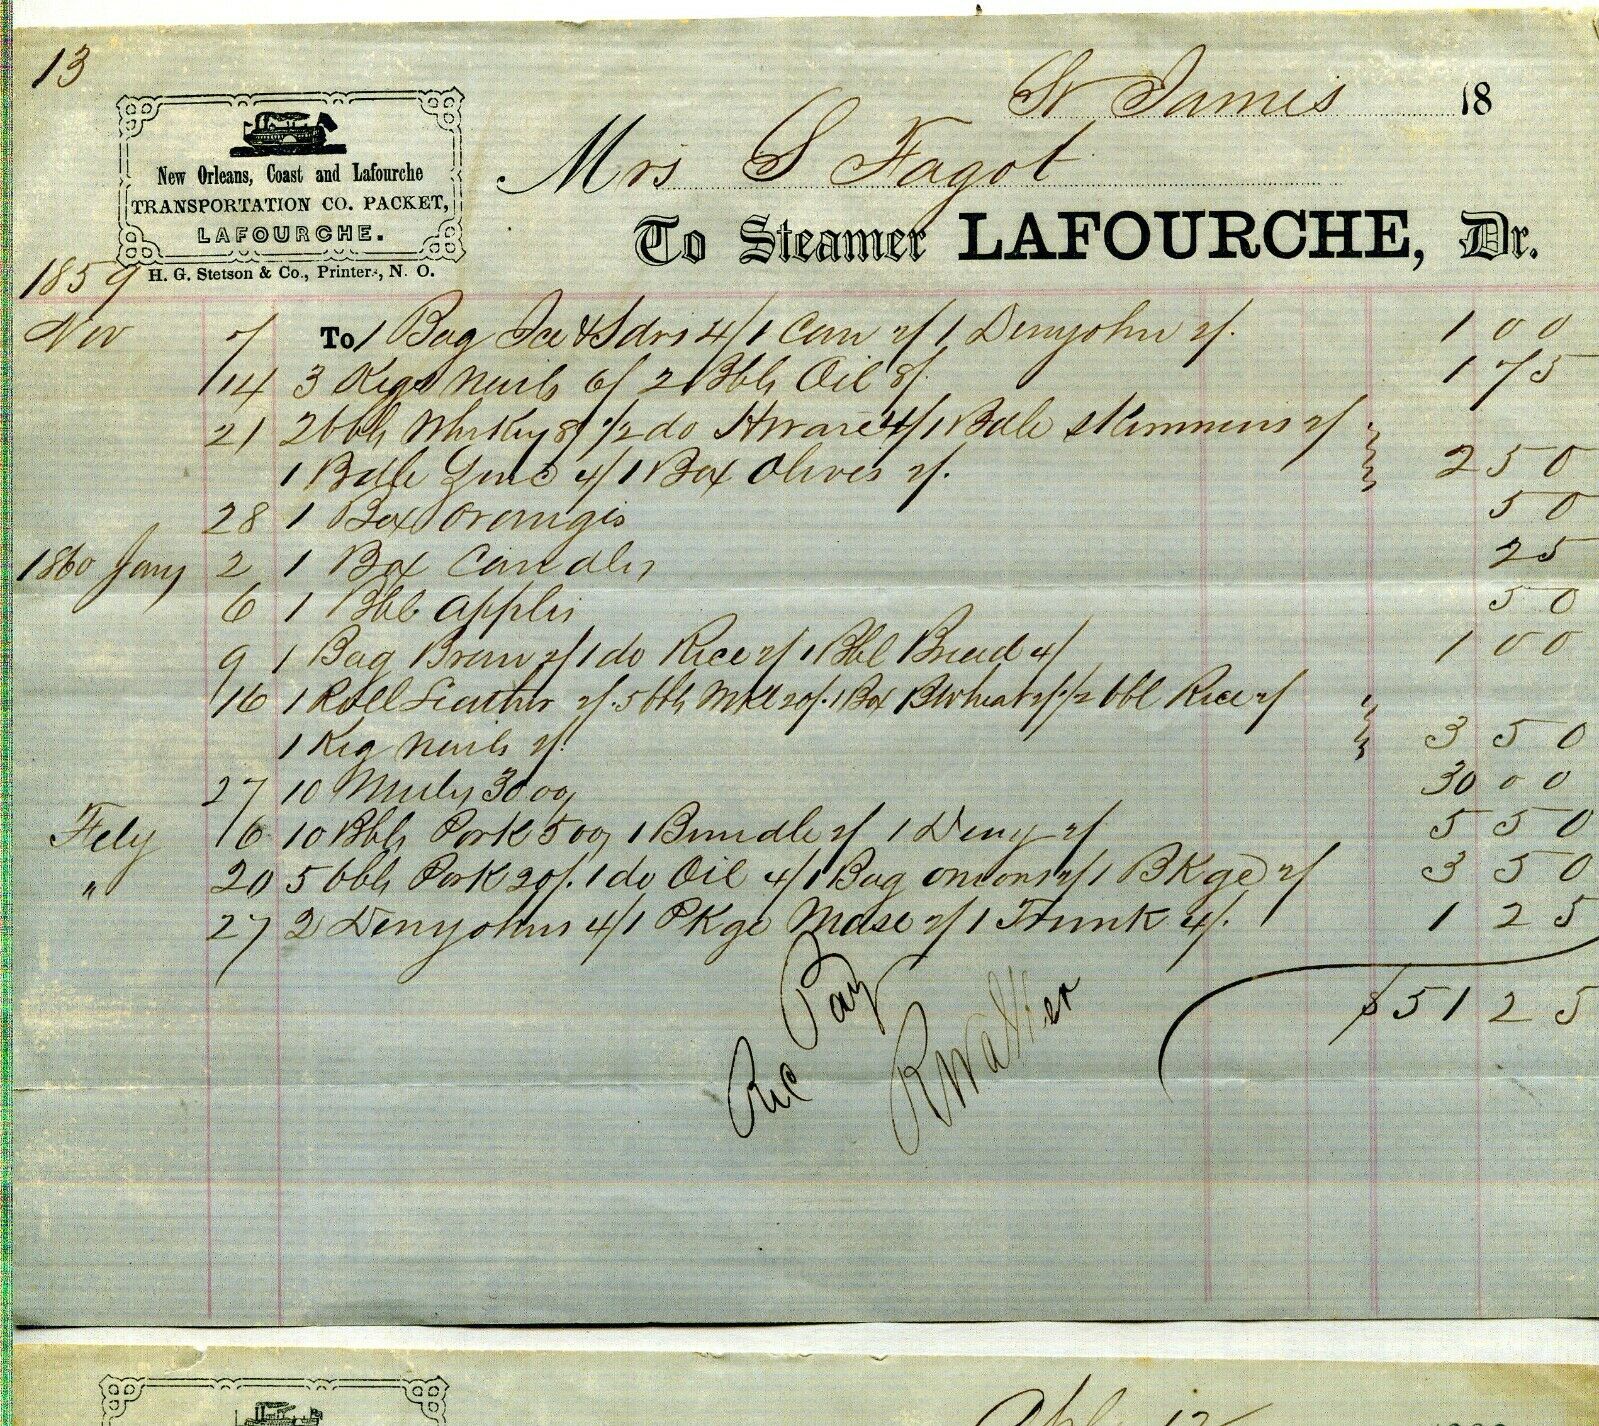 13
St James 18
Mrs S Fagot
New Orleans, Coast and Lafourche
TRANSPORTATION CO. PACKET,
LAFOURCHE.
H. G. Stetson & Co., Printer., N. O.
To Steamer LAFOURCHE, Dr.
1859
Nov 7 To 1 Bag Ice & Sdrs 4/ 1 Can 2/ 1 Demjohn 2/. 1 00
14 3 Kegs Nails 6/ 2 Bbls Oil 8/. 1 75
21 2 bbls Whisky 8/ 1/2 do Hware 4/ 1 Bdle Skimmers 2/
1 Bdle Zinc 4/ 1 Box Olives 2/. 2 50
28 1 Box Oranges 50
1860 Jany 2 1 Box Candles 25
6 1 Bbl Apples 50
9 1 Bag Bran 2/ 1 do Rice 2/ 1 Bbl Bread 4/ 1 00
16 1 Roll Leather 2/. 5 bbls 20/. 1 Box BWheat 2/ 1/2 bbl Rice 2/
1 Keg Nails 2/. 3 50
27 10 Mules 30 00 30 00
Feby 16 10 Bbls Pork 5 00 1 Bundle 2/ 1 Demj 2/ 5 50
" 20 5 bbls Pork 20/. 1 do Oil 4/ 1 Bag onions 2/ 1 PKge 2/ 3 50
27 2 Demjohns 4/ 1 PKge Mdse 2/ 1 Trunk 4/. 1 25
$51 25
Rec Pay
R Walker